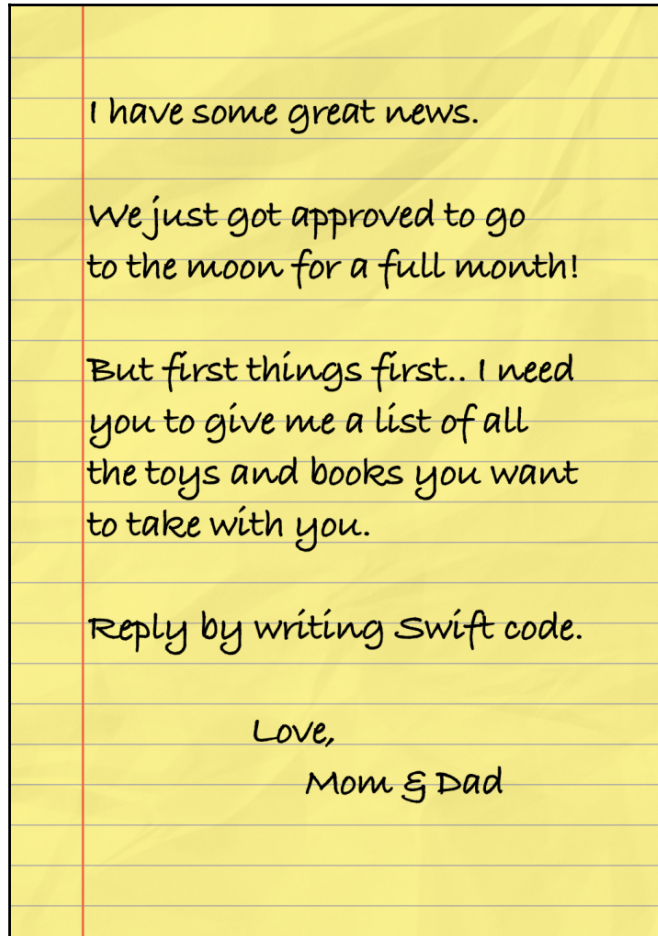 I have some great news.
We just got approved to go
to the moon for a full month!
But first things first.. I need
you to give me a list of all
the toys and books you want
to take with you.
Reply by writing Swift code.
Love,
Mom & Dad